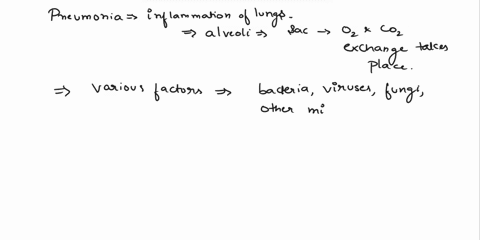 Pneumonia ⇒ inflammation of lungs.
⇒ alveoli ⇒ sac → O2 & CO2
exchange takes
place.
⇒ various factors ⇒ bacteria, viruses, fungi,
other mi